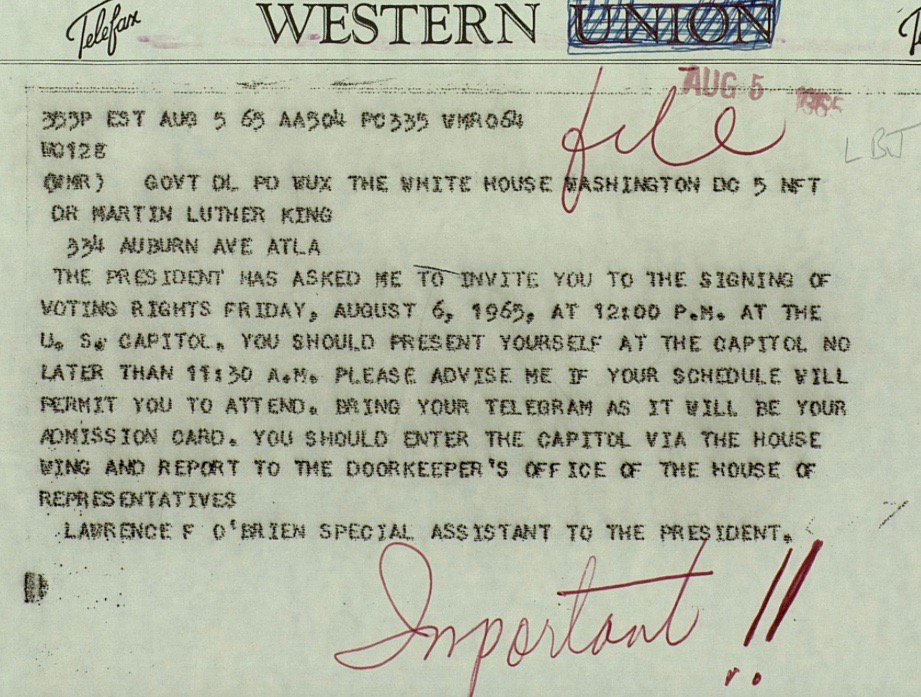 Telefax WESTERN UNION
AUG 5 1965
file
LBJ
353P EST AUG 5 65 AA504 PC335 WMR064
WG128
(WMR) GOVT DL PD WUX THE WHITE HOUSE WASHINGTON DC 5 NFT
DR MARTIN LUTHER KING
334 AUBURN AVE ATLA
THE PRESIDENT HAS ASKED ME TO INVITE YOU TO THE SIGNING OF
VOTING RIGHTS FRIDAY, AUGUST 6, 1965, AT 12:00 P.M. AT THE
U. S. CAPITOL. YOU SHOULD PRESENT YOURSELF AT THE CAPITOL NO
LATER THAN 11:30 A.M. PLEASE ADVISE ME IF YOUR SCHEDULE WILL
PERMIT YOU TO ATTEND. BRING YOUR TELEGRAM AS IT WILL BE YOUR
ADMISSION CARD. YOU SHOULD ENTER THE CAPITOL VIA THE HOUSE
WING AND REPORT TO THE DOORKEEPER'S OFFICE OF THE HOUSE OF
REPRESENTATIVES
LAWRENCE F O'BRIEN SPECIAL ASSISTANT TO THE PRESIDENT.
Important!!